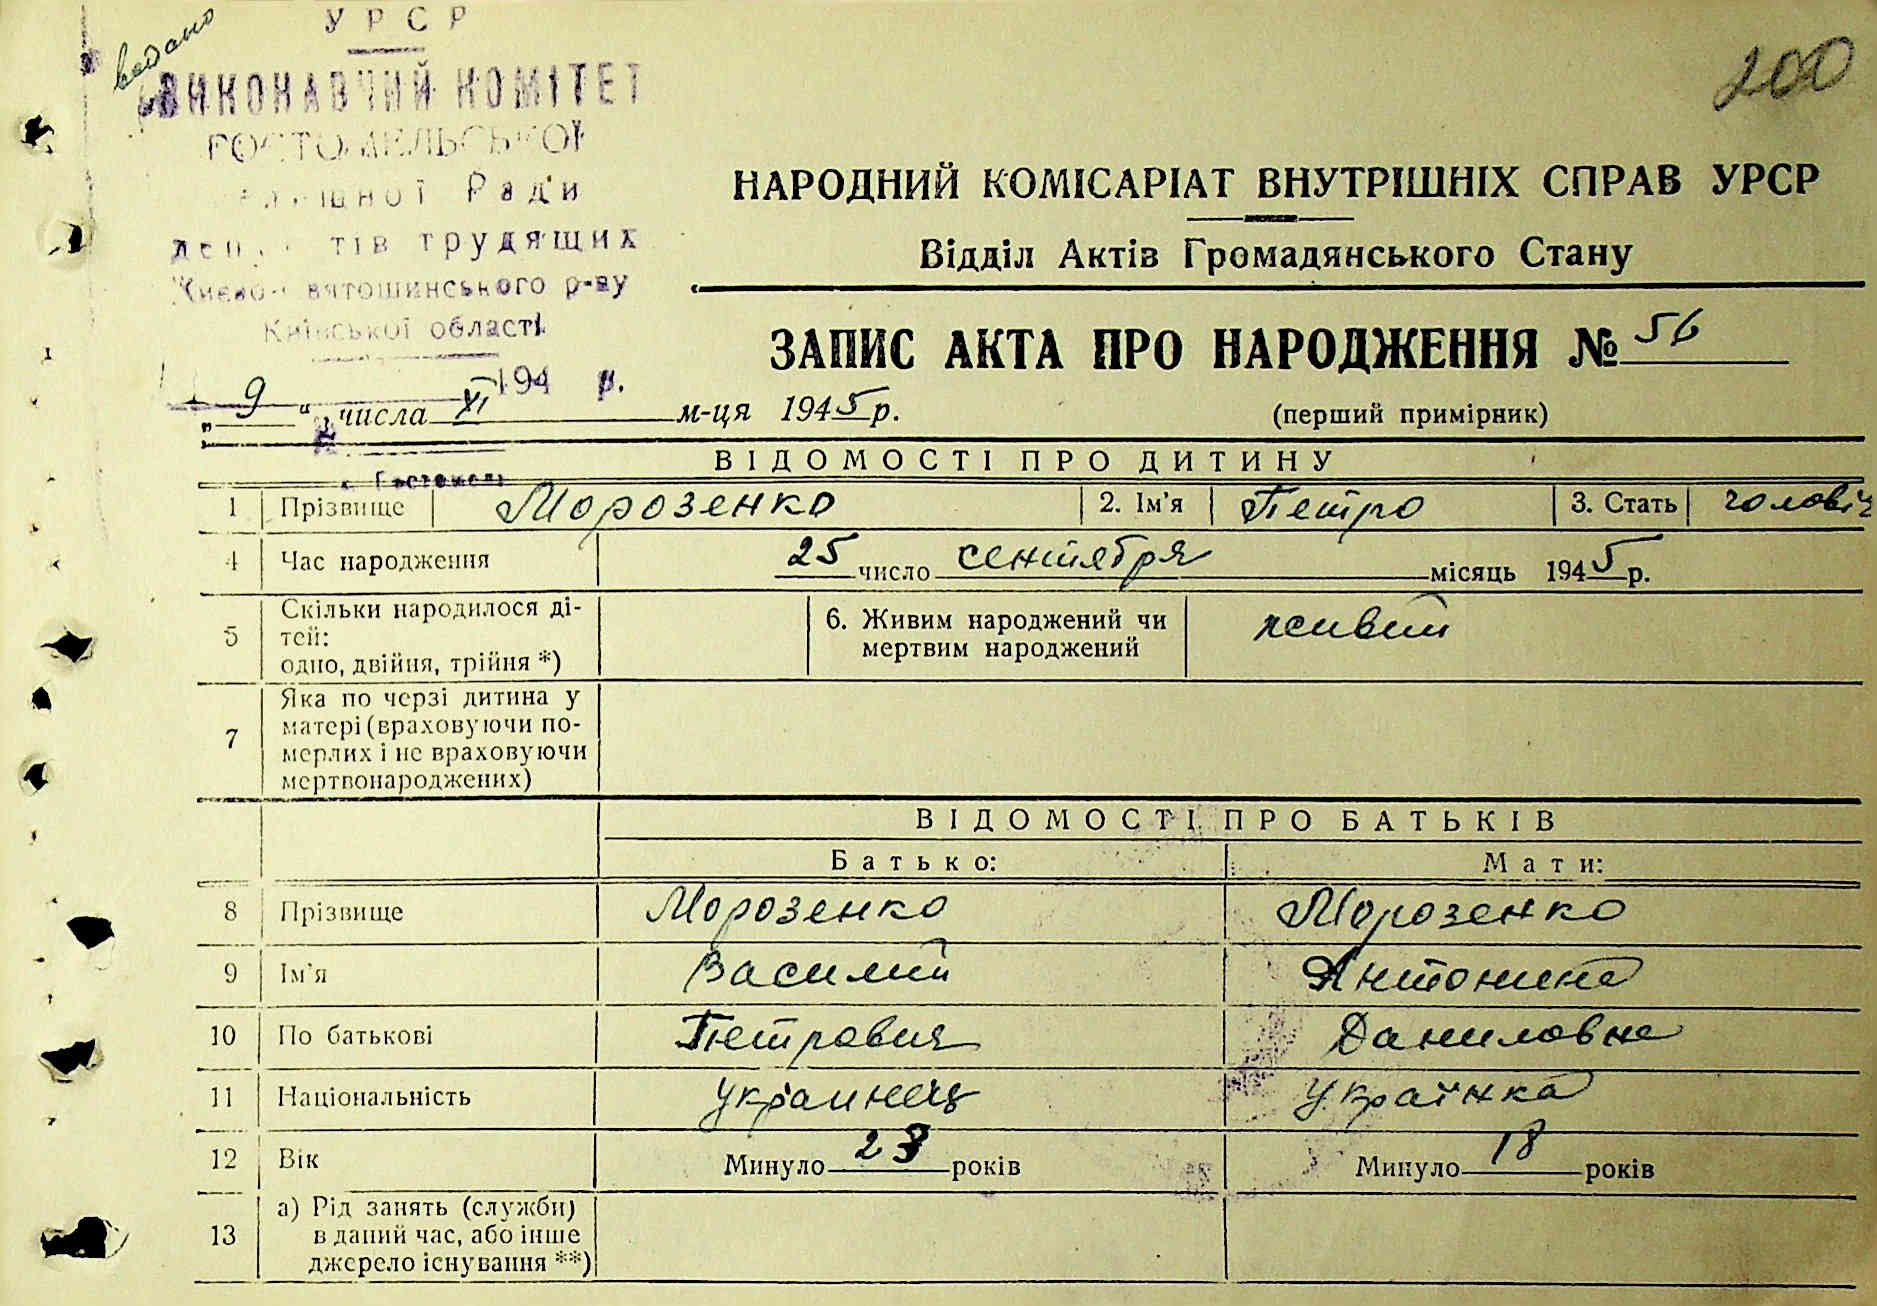 УРСР
видано
200
ВИКОНАВЧИЙ КОМІТЕТ
ГОСТОМЕЛЬСЬКОЇ
Ради
НАРОДНИЙ КОМІСАРІАТ ВНУТРІШНІХ СПРАВ УРСР
депутатів трудящих
Відділ Актів Громадянського Стану
Києво-Святошинського р-ву
Київської області
ЗАПИС АКТА ПРО НАРОДЖЕННЯ № 56
194 р.
„ 9 “ числа XI м-ця 1945 р.
(перший примірник)
ВІДОМОСТІ ПРО ДИТИНУ
с. Гостомель
1 Прізвище Морозенко 2. Ім'я Петро 3. Стать чоловіч
4 Час народження 25 число сентября місяць 1945 р.
5 Скільки народилося ді-
тей:
одно, двійня, трійня *)
6. Живим народжений чи
мертвим народжений
живий
7 Яка по черзі дитина у
матері (враховуючи по-
мерлих і не враховуючи
мертвонароджених)
ВІДОМОСТІ ПРО БАТЬКІВ
Батько: Мати:
8 Прізвище Морозенко Морозенко
9 Ім'я Василий Антонина
10 По батькові Петрович Даниловна
11 Національність украинец Українка
12 Вік Минуло 23 років Минуло 18 років
13 а) Рід занять (служби)
в даний час, або інше
джерело існування **)